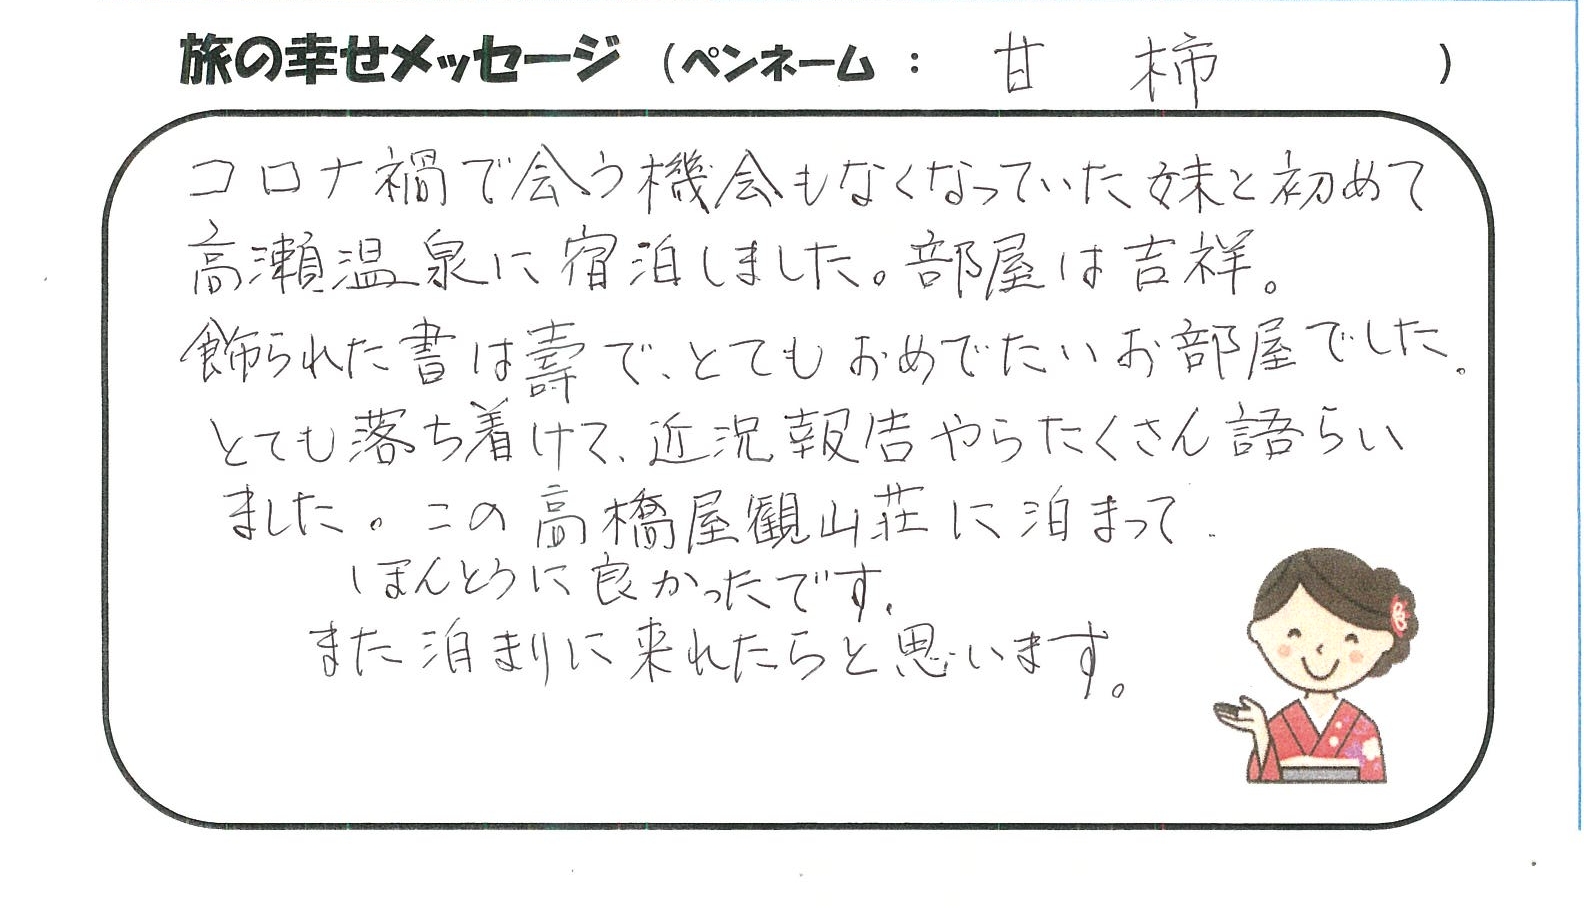 旅の幸せメッセージ (ペンネーム : 甘柿 )
コロナ禍で会う機会もなくなっていた妹と初めて
高瀬温泉に宿泊しました。部屋は吉祥。
飾られた書は壽で、とてもおめでたいお部屋でした。
とても落ち着けて、近況報告やらたくさん語らい
ました。この高橋屋観山荘に泊まって
ほんとうに良かったです。
また泊まりに来れたらと思います。